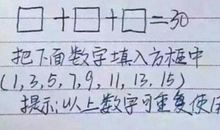 □+□+□=30
把下面数字填入方框中
(1,3,5,7,9,11,13,15)
提示:以上数字可重复使用